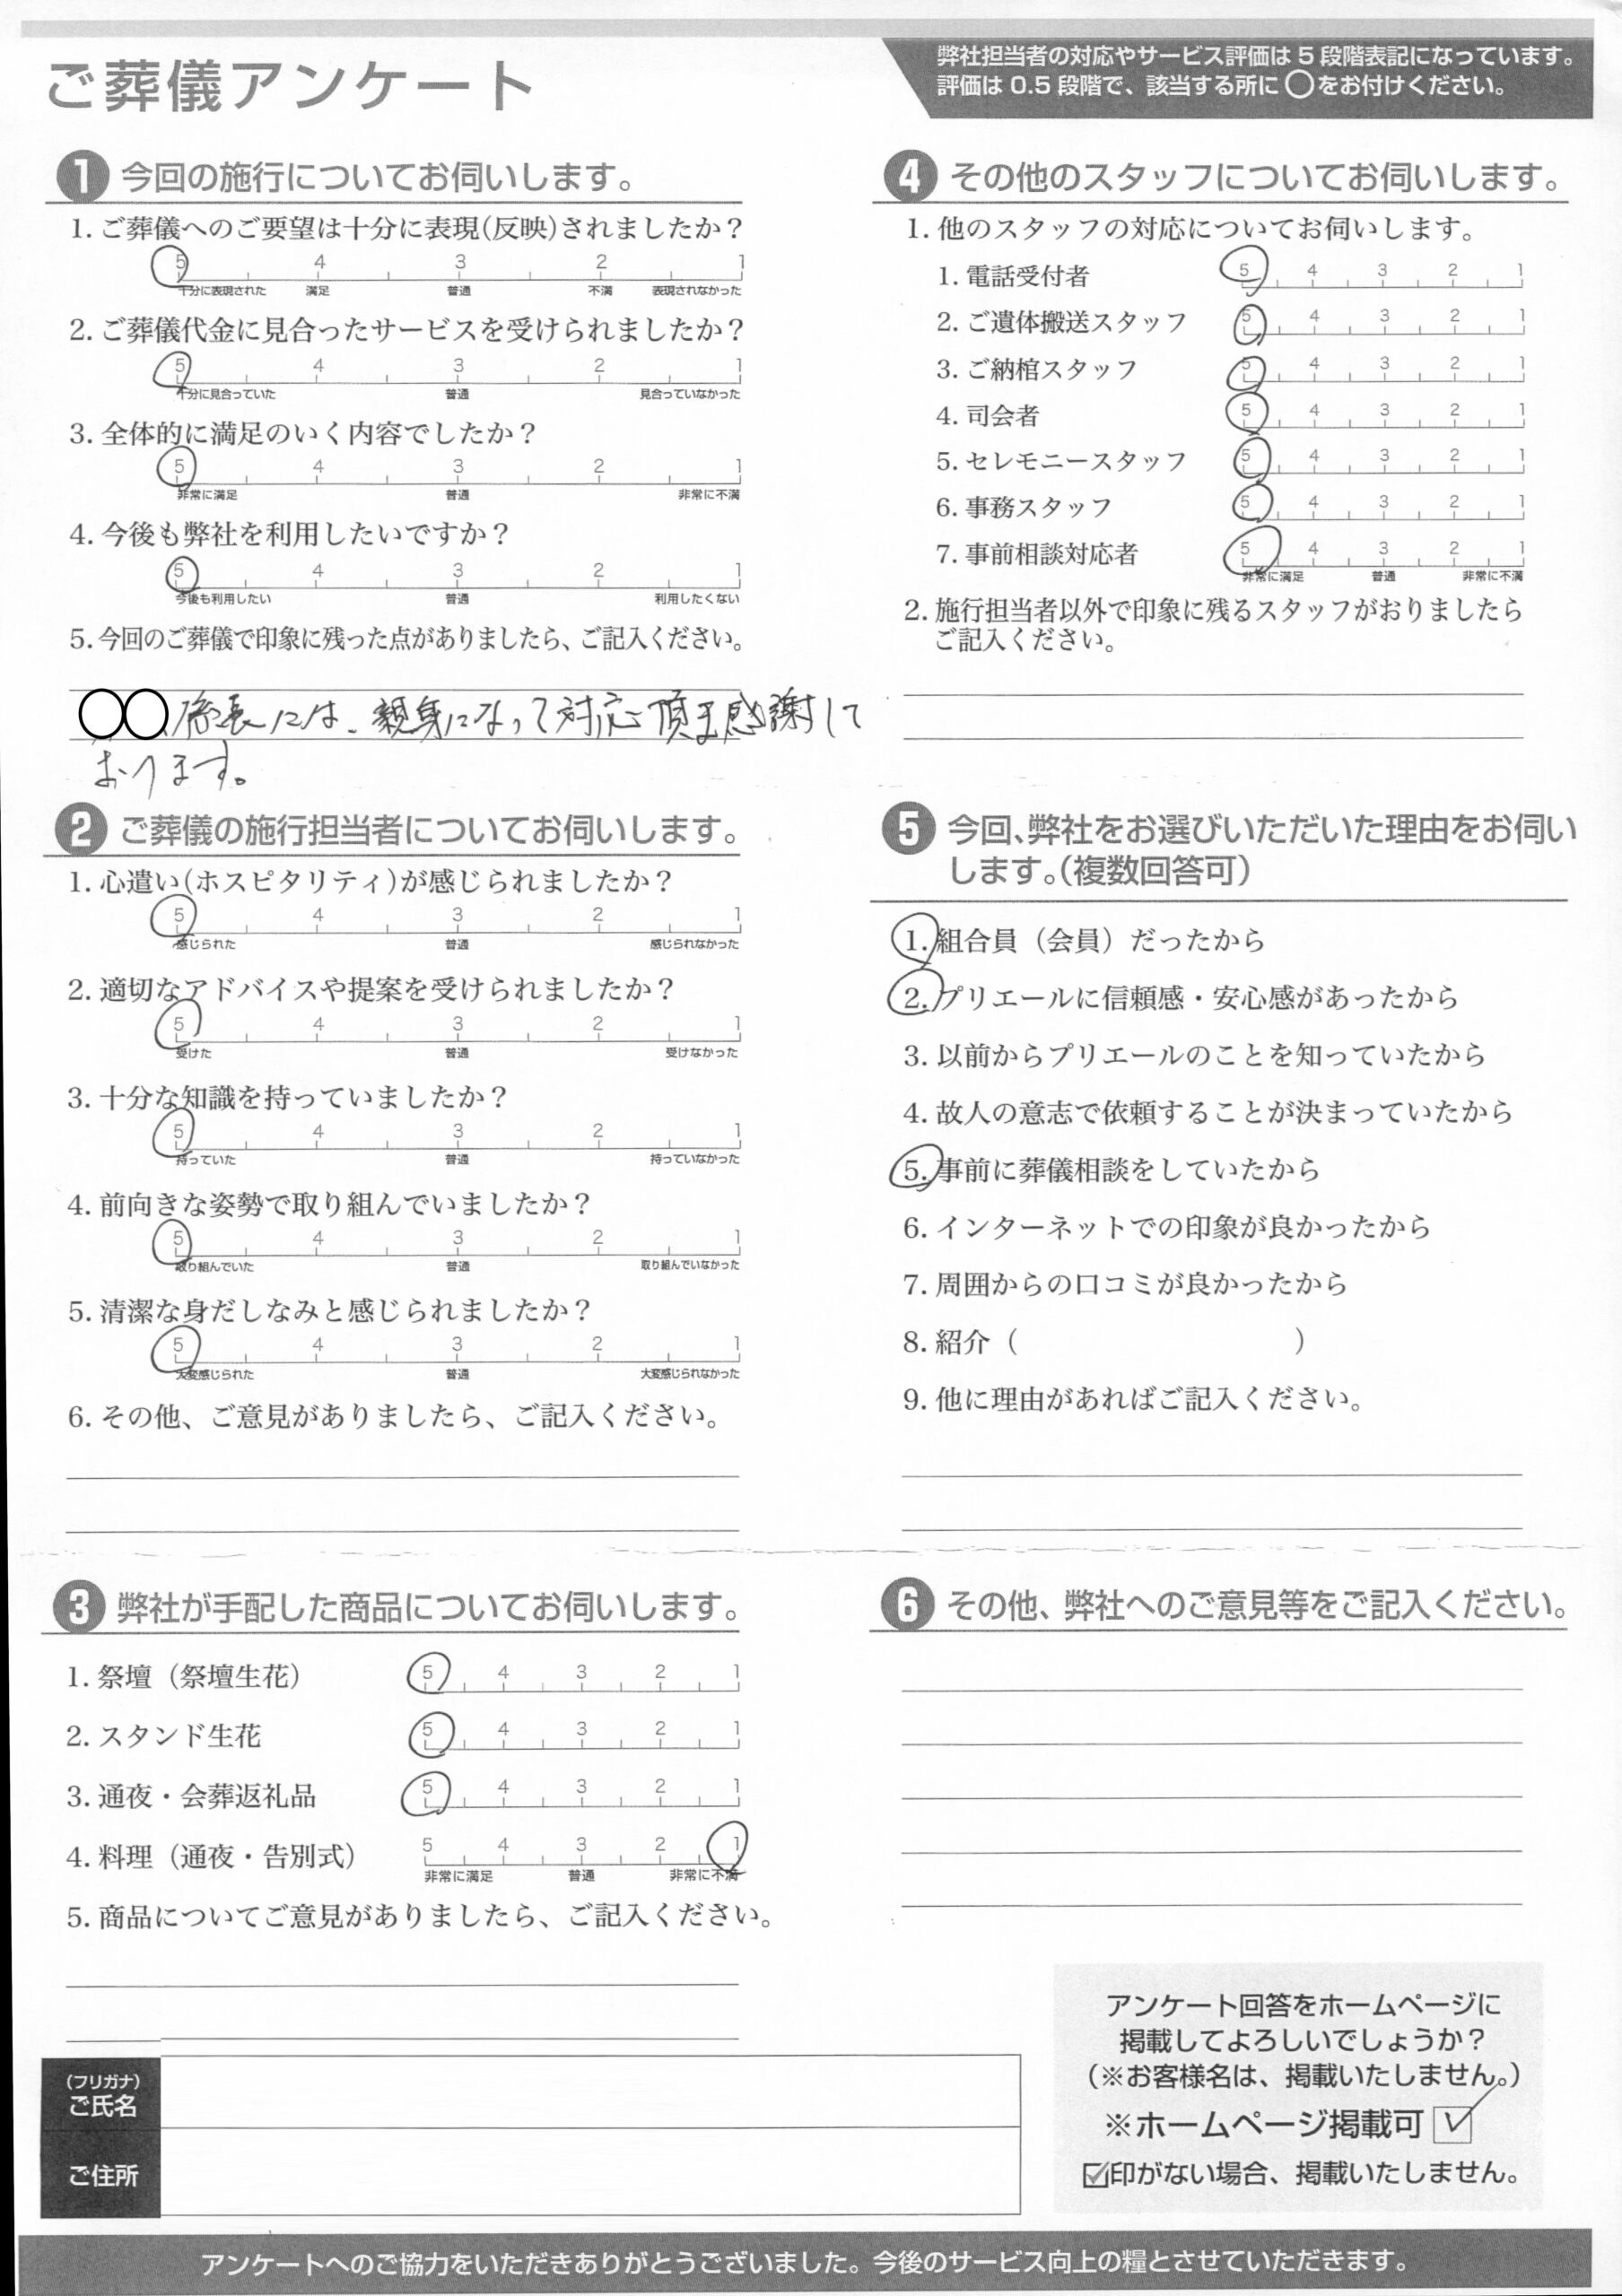 ご葬儀アンケート
弊社担当者の対応やサービス評価は 5 段階表記になっています。
評価は 0.5 段階で、該当する所に ◯をお付けください。
1 今回の施行についてお伺いします。
1. ご葬儀へのご要望は十分に表現(反映)されましたか？
5 4 3 2 1
十分に表現された 満足 普通 不満 表現されなかった
2. ご葬儀代金に見合ったサービスを受けられましたか？
5 4 3 2 1
十分に見合っていた 普通 見合っていなかった
3. 全体的に満足のいく内容でしたか？
5 4 3 2 1
非常に満足 普通 非常に不満
4. 今後も弊社を利用したいですか？
5 4 3 2 1
今後も利用したい 普通 利用したくない
5. 今回のご葬儀で印象に残った点がありましたら、ご記入ください。
◯◯係長には、親身になって対応頂き感謝して
おります。
2 ご葬儀の施行担当者についてお伺いします。
1. 心遣い(ホスピタリティ)が感じられましたか？
5 4 3 2 1
感じられた 普通 感じられなかった
2. 適切なアドバイスや提案を受けられましたか？
5 4 3 2 1
受けた 普通 受けなかった
3. 十分な知識を持っていましたか？
5 4 3 2 1
持っていた 普通 持っていなかった
4. 前向きな姿勢で取り組んでいましたか？
5 4 3 2 1
取り組んでいた 普通 取り組んでいなかった
5. 清潔な身だしなみと感じられましたか？
5 4 3 2 1
大変感じられた 普通 大変感じられなかった
6. その他、ご意見がありましたら、ご記入ください。
3 弊社が手配した商品についてお伺いします。
1. 祭壇（祭壇生花） 5 4 3 2 1
2. スタンド生花 5 4 3 2 1
3. 通夜・会葬返礼品 5 4 3 2 1
4. 料理（通夜・告別式） 5 4 3 2 1
非常に満足 普通 非常に不満
5. 商品についてご意見がありましたら、ご記入ください。
4 その他のスタッフについてお伺いします。
1. 他のスタッフの対応についてお伺いします。
1. 電話受付者 5 4 3 2 1
2. ご遺体搬送スタッフ 5 4 3 2 1
3. ご納棺スタッフ 5 4 3 2 1
4. 司会者 5 4 3 2 1
5. セレモニースタッフ 5 4 3 2 1
6. 事務スタッフ 5 4 3 2 1
7. 事前相談対応者 5 4 3 2 1
非常に満足 普通 非常に不満
2. 施行担当者以外で印象に残るスタッフがおりましたら
ご記入ください。
5 今回、弊社をお選びいただいた理由をお伺い
します。(複数回答可)
1. 組合員（会員）だったから
2. プリエールに信頼感・安心感があったから
3. 以前からプリエールのことを知っていたから
4. 故人の意志で依頼することが決まっていたから
5. 事前に葬儀相談をしていたから
6. インターネットでの印象が良かったから
7. 周囲からの口コミが良かったから
8. 紹介（ ）
9. 他に理由があればご記入ください。
6 その他、弊社へのご意見等をご記入ください。
アンケート回答をホームページに
掲載してよろしいでしょうか？
(※お客様名は、掲載いたしません。)
※ホームページ掲載可 ☑
☑印がない場合、掲載いたしません。
(フリガナ)
ご氏名
ご住所
アンケートへのご協力をいただきありがとうございました。今後のサービス向上の糧とさせていただきます。